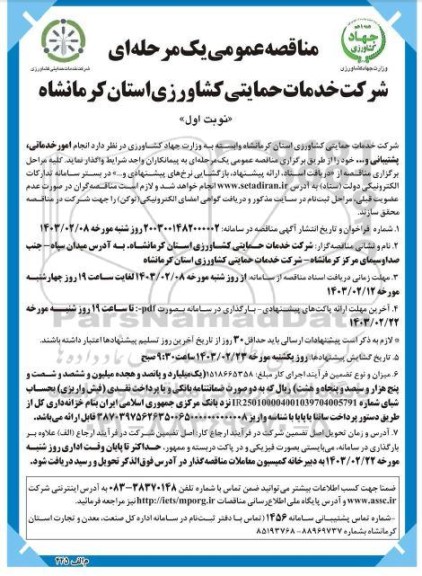 جهاد کشاورزی
وزارت جهاد کشاورزی
شرکت خدمات حمایتی کشاورزی
مناقصه عمومی یک مرحله‌ای
شرکت خدمات حمایتی کشاورزی استان کرمانشاه
«نوبت اول»
شرکت خدمات حمایتی کشاورزی استان کرمانشاه وابسته به وزارت جهاد کشاورزی در نظر دارد انجام امور خدماتی،
پشتیبانی و... خود را از طریق برگزاری مناقصه عمومی یک مرحله‌ای به پیمانکاران واجد شرایط واگذار نماید. کلیه مراحل
برگزاری مناقصه از «دریافت اسناد، ارائه پیشنهاد، بازگشایی نرخ‌های پیشنهادی و...» در بستر سامانه تدارکات
الکترونیکی دولت (ستاد) به آدرس www.setadiran.ir انجام خواهد شد و لازم است مناقصه‌گران در صورت عدم
عضویت قبلی، مراحل ثبت‌نام در سایت مذکور و دریافت گواهی امضای الکترونیکی (توکن) را جهت شرکت در مناقصه
محقق سازند.
۱. شماره فراخوان و تاریخ انتشار آگهی مناقصه در سامانه: ۲۰۰۳۰۰۱۴۸۲۰۰۰۰۰۲ روز شنبه مورخه ۱۴۰۳/۰۲/۰۸
۲. نام و نشانی مناقصه‌گزار: شرکت خدمات حمایتی کشاورزی استان کرمانشاه، به آدرس میدان سپاه – جنب
صداوسیمای مرکز کرمانشاه – شرکت خدمات حمایتی کشاورزی استان کرمانشاه
۳. مهلت زمانی دریافت اسناد مناقصه از سامانه: از روز شنبه مورخه ۱۴۰۳/۰۲/۰۸ لغایت ساعت ۱۹ روز چهارشنبه
مورخه ۱۴۰۳/۰۲/۱۲
۴. آخرین مهلت ارائه پاکت‌های پیشنهادی – بارگذاری در سامانه بصورت pdf-: تا ساعت ۱۹ روز شنبه مورخه
۱۴۰۳/۰۲/۲۲
* لازم به ذکر است پیشنهادات ارسالی باید حداقل ۳۰ روز از تاریخ آخرین روز تسلیم پیشنهادها اعتبار داشته باشند.
۵. تاریخ گشایش پیشنهادها: روز یکشنبه مورخه ۱۴۰۳/۰۲/۲۳ ساعت ۹:۳۰ صبح
۶. میزان و نوع تضمین فرآیند اجرای کار مبلغ: ۱۵۱۸۶۶۵۳۵۸ (یک میلیارد و پانصد و هجده میلیون و ششصد و شصت و
پنج هزار و سیصد و پنجاه و هشت) ریال که به دو صورت ضمانتنامه بانکی و یا پرداخت نقدی (فیش واریزی) بحساب
شبای شماره IR250100004001039704005791 نزد بانک مرکزی جمهوری اسلامی ایران بنام خزانه‌داری کل از
طریق دستور پرداخت ساتنا یا پایا با شناسه واریز قابل ارائه می‌باشد.
۷. آدرس و زمان تحویل اصل تضمین شرکت در فرآیند ارجاع کار: اصل تضمین شرکت در فرآیند ارجاع (الف) علاوه بر
بارگذاری در سامانه، می‌بایستی بصورت فیزیکی و در پاکت دربسته و ممهور، حداکثر تا پایان وقت اداری روز شنبه
مورخه ۱۴۰۳/۰۲/۲۲ به دبیرخانه کمیسیون معاملات مناقصه‌گذار در آدرس فوق‌الذکر تحویل و رسید دریافت شود.
ضمنا جهت کسب اطلاعات بیشتر می‌توانید ضمن تماس با شماره تلفن ۳۸۳۷۰۱۴۸-۰۸۳ به آدرس اینترنتی شرکت
www.assc.ir و آدرس پایگاه ملی اطلاع‌رسانی مناقصات http://icts/mporg.ir نیز مراجعه فرمائید.
-شماره تماس پشتیبانی سامانه ۱۴۵۶ (تماس با دفتر ثبت‌نام در سامانه اداره کل صنعت، معدن و تجارت استان
کرمانشاه بشماره ۸۸۹۶۹۷۳۷ - ۸۵۱۹۳۷۶۸
م الف ۲۲۵